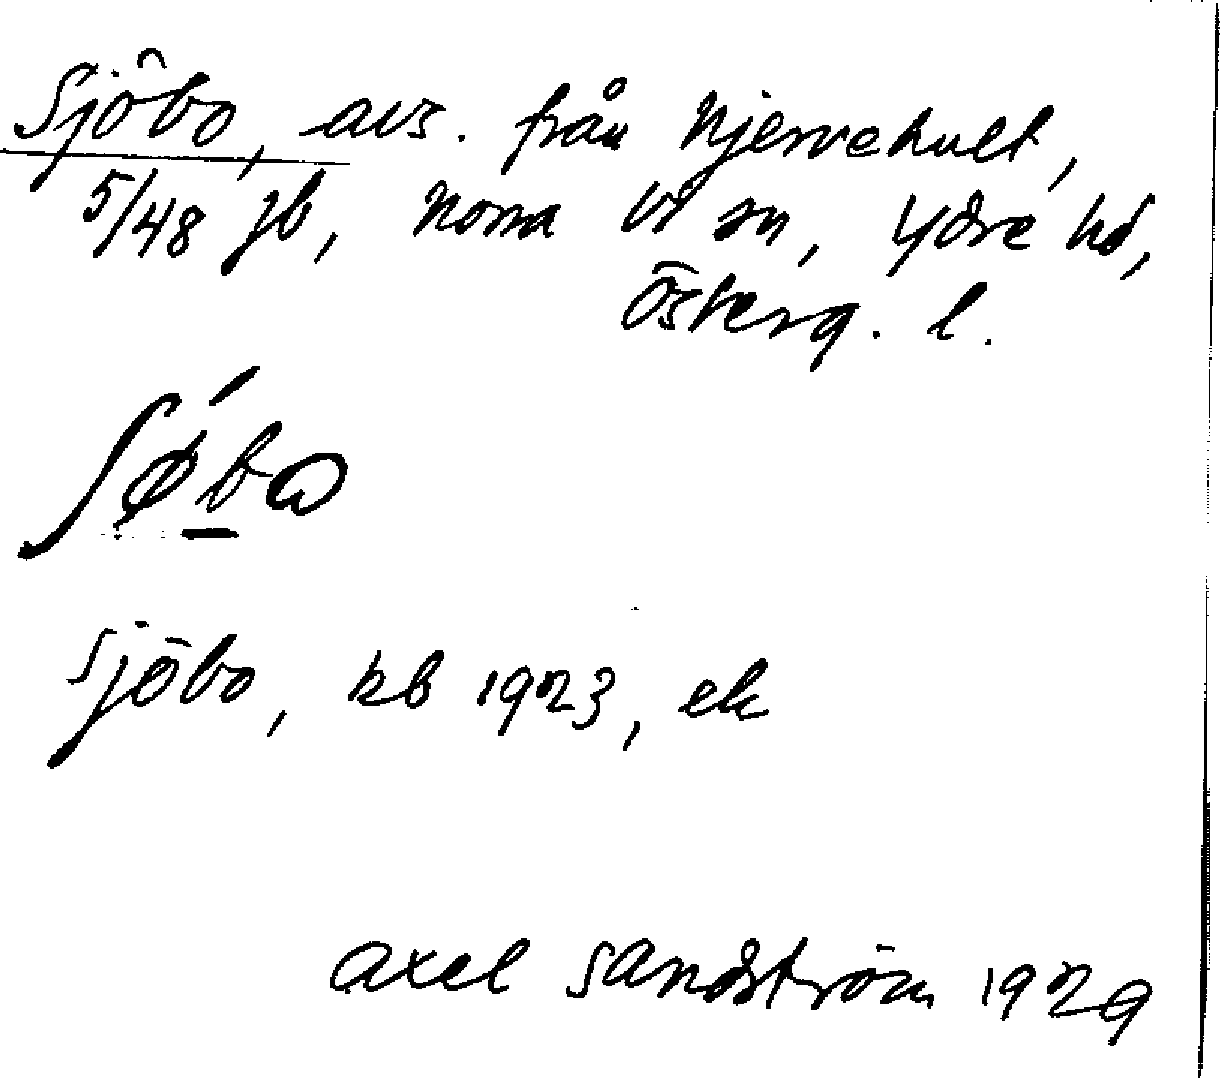 Sjöbo, avs. från Njervehult,
5/48 jb, Norra Vi sn, Ydre hd,
Österg. l.
ʃǿbɷ
Sjöbo, kb 1923, ek
Axel Sandström 1929